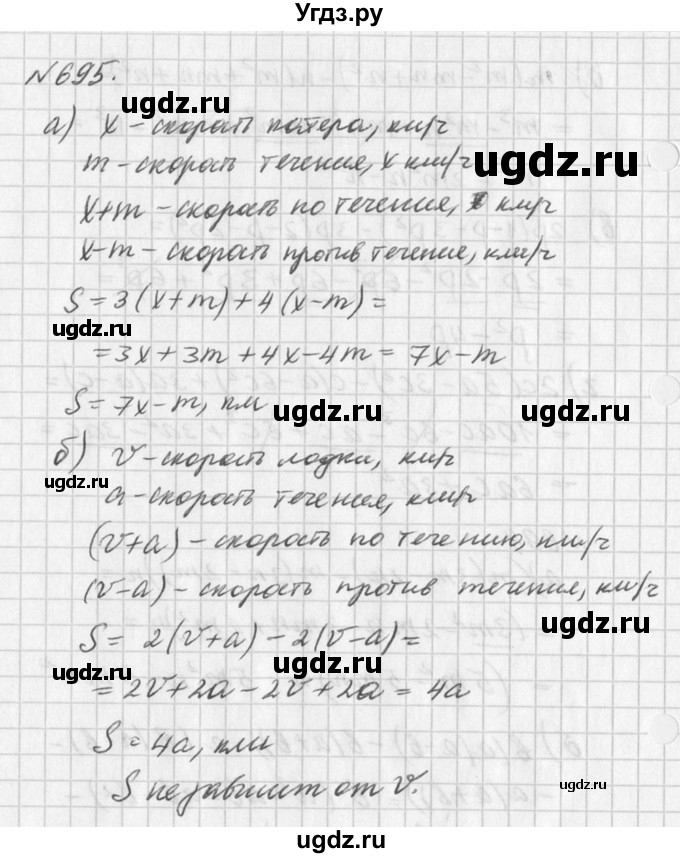 Угдз.ру
№695.
ugdz.ru
а) x – скорость катера, км/ч
m – скорость течения, x км/ч
ugdz.ru
x+m – скорость по течение, км/ч
x-m – скорость против течение, км/ч
S = 3(x+m)+4(x-m) =
ugdz.ru
ugdz.ru
= 3x+3m+4x-4m = 7x-m
S = 7x-m, км
ugdz.ru
ugdz.ru
б) v – скорость лодки, км/ч
ugdz.ru
a – скорость течения, км/ч
(v+a) – скорость по течению, км/ч
(v-a) – скорость против течения, км/ч
ugdz.ru
S = 2(v+a)-2(v-a) =
ugdz.ru
= 2v+2a-2v+2a = 4a
S = 4a, км
S не зависит от v.
ugdz.ru
ugdz.ru